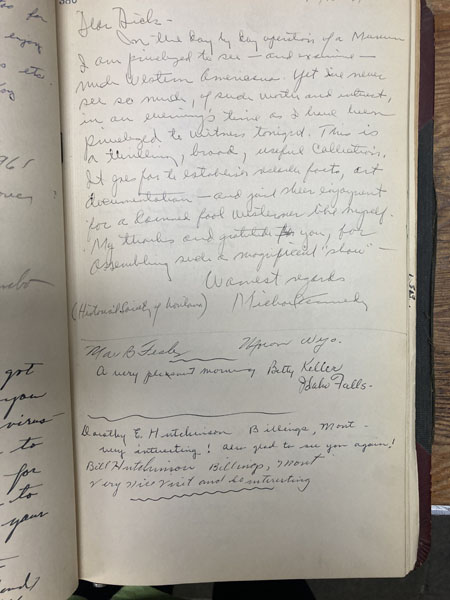 380
Dear Dick -
In the day by day operation of a Museum
I am privileged to see - and examine -
much Western Americana. Yet I've never
see so much, of such worth and interest,
in an evenings time as I have been
privileged to witness tonight. This is
a thrilling, broad, useful Collection.
It goes far to establish facts, art
documentation - and just sheer enjoyment
for a Westerner like myself.
My thanks and gratitude to you, for
assembling such a magnificent "show" -
Warmest regards
(Historical Society of Montana) Michael Kennedy
Mae B. Upton Wyo.
A very pleasant morning Betty Keller
Idaho Falls -
Dorothy E. Hutchinson Billings, Mont -
very interesting! Also glad to see you again!
Bill Hutchinson Billings, Mont
Very nice visit and so interesting
1965
got
you
virus
- to
for
- to
your